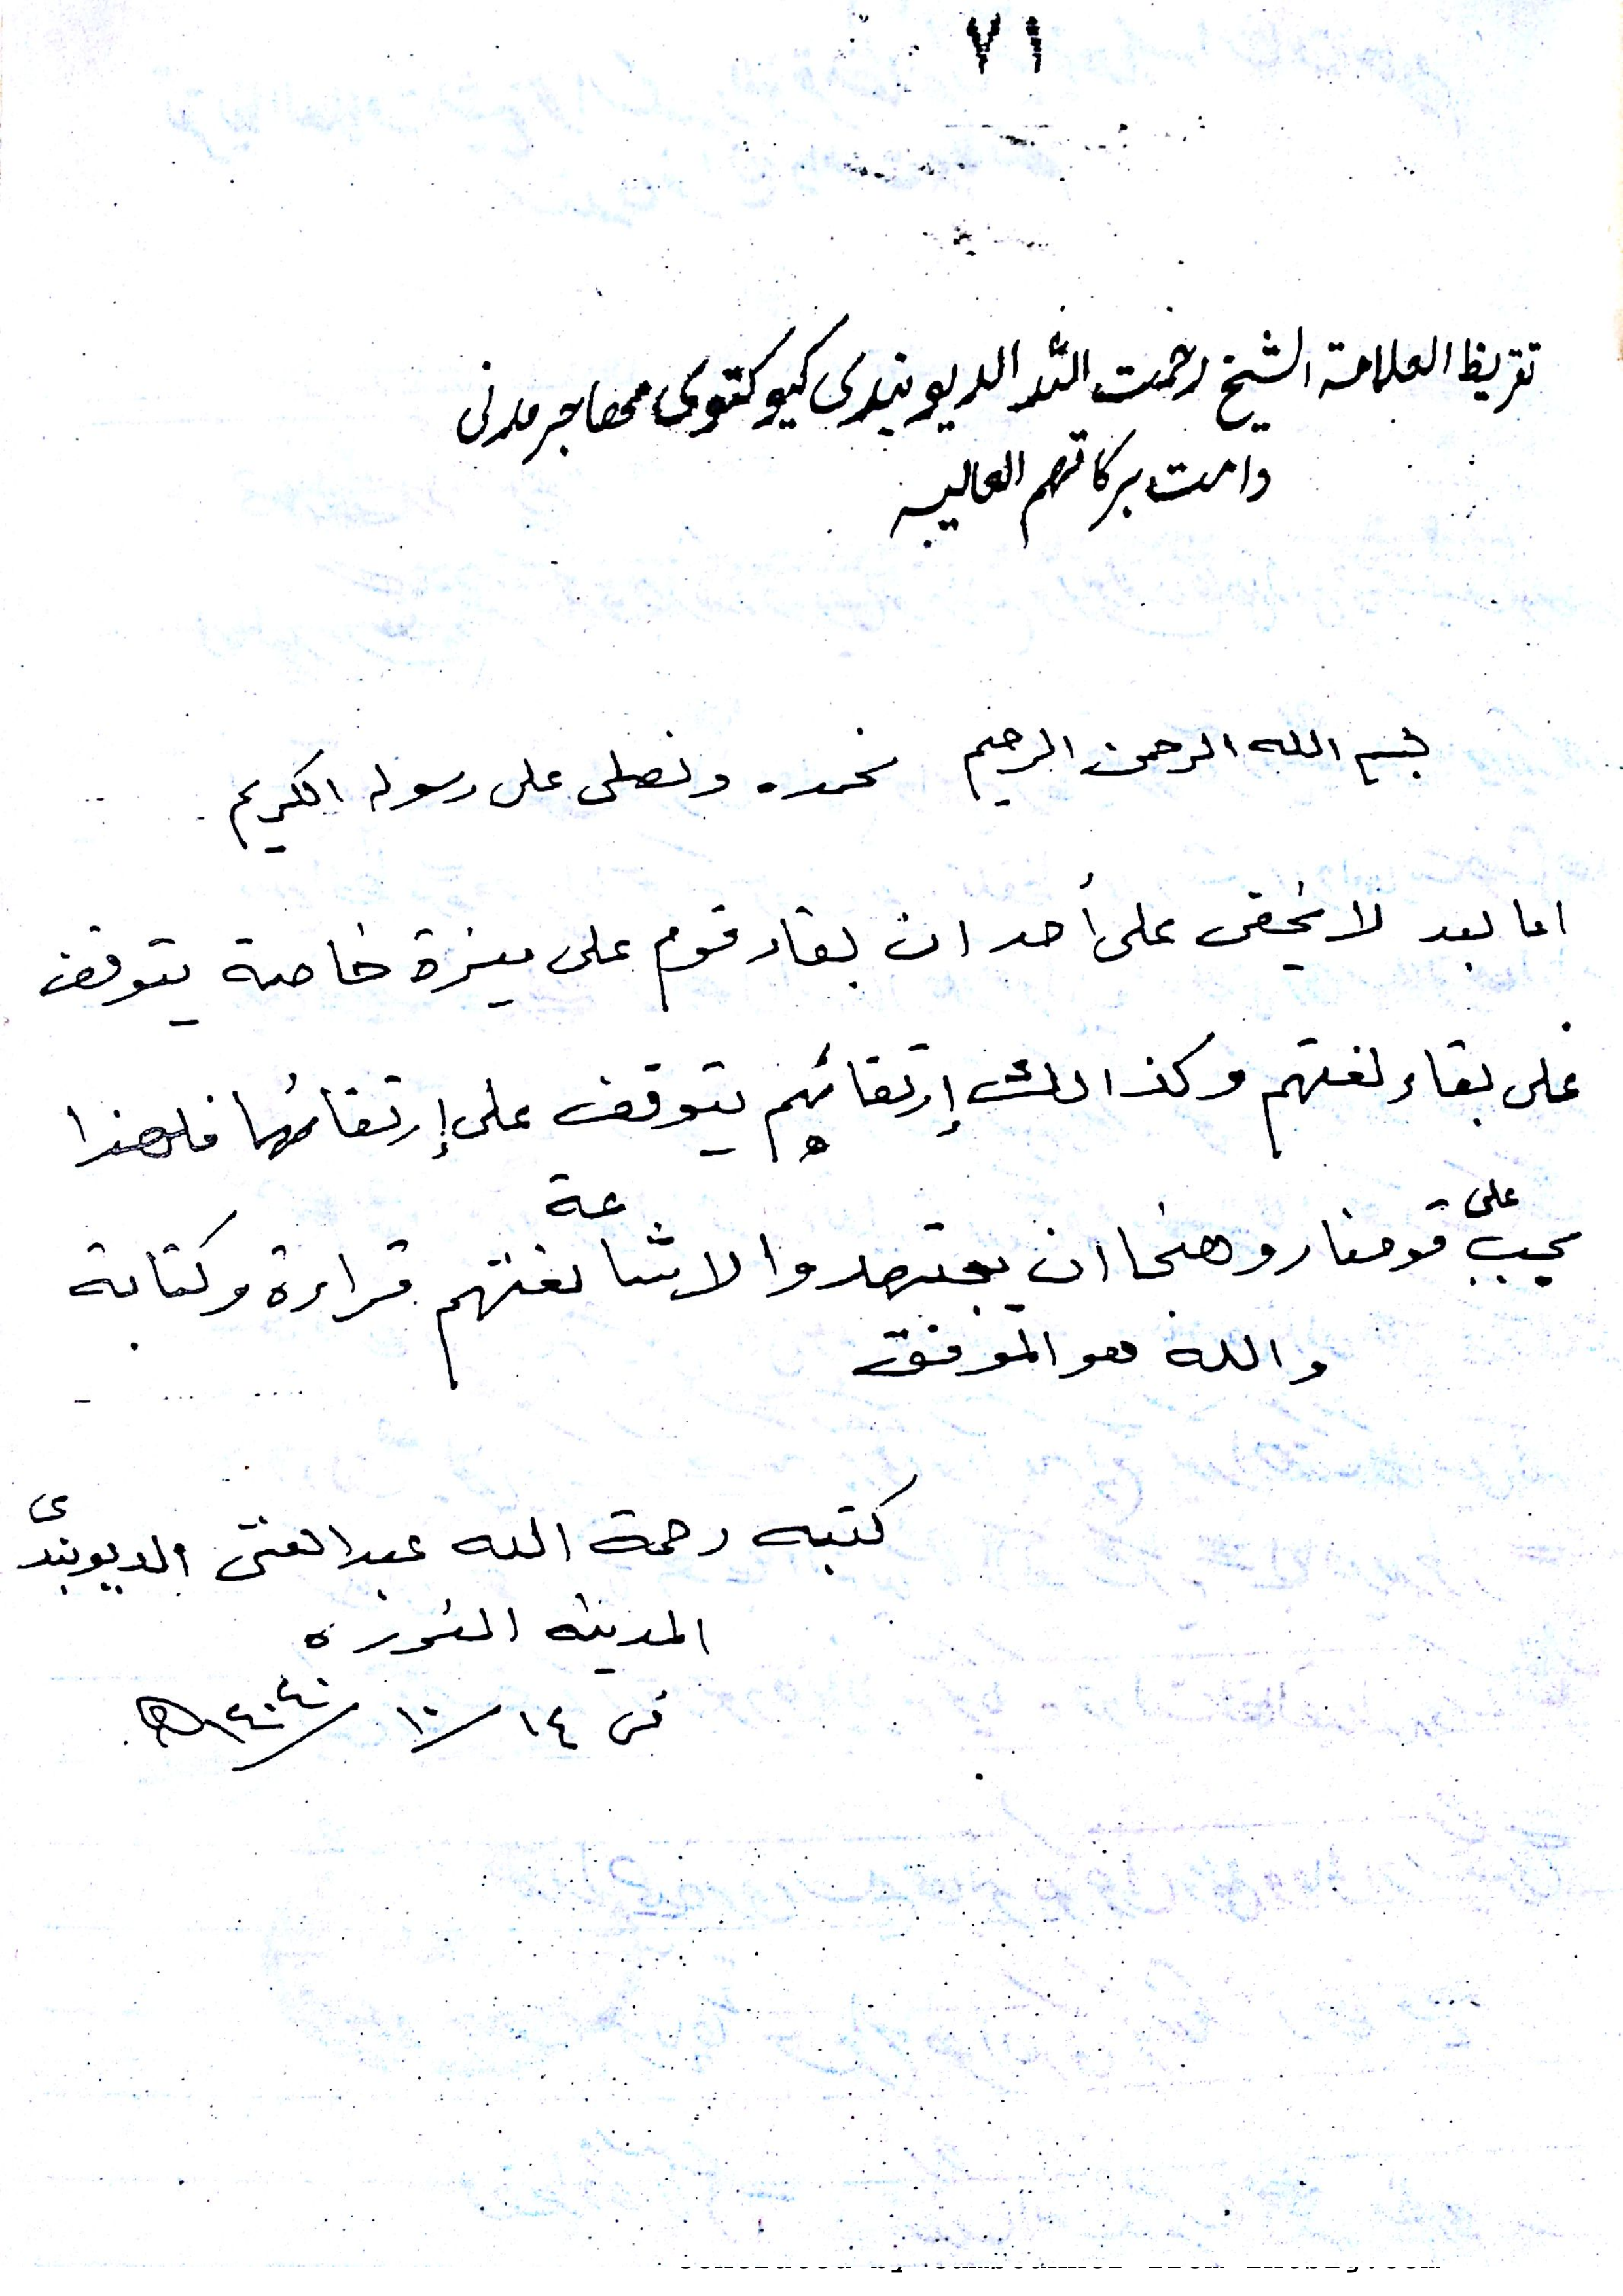 ٧١
تقريظ العلامة الشيخ رحمت الله الديوبندى كيوكتوى مهاجر مدنى
دامت بركاتهم العاليه
بسم الله الرحمن الرحيم نحمده ونصلى على رسوله الكريم
اما بعد لا يخفى على أحد ان بقاء قوم على ميزة خاصة يتوقف
على بقاء لغتهم وكذالك إرتقائهم يتوقف على إرتقائها فلهذا
يجب على قومنا روهنجا ان يجتهدوا لاشاعة لغتهم قراءة وكتابة
والله هو الموفق
كتبه رحمة الله عبد الغنى الديوبندى
المدينه المنوره
فى ١٤/١٠/